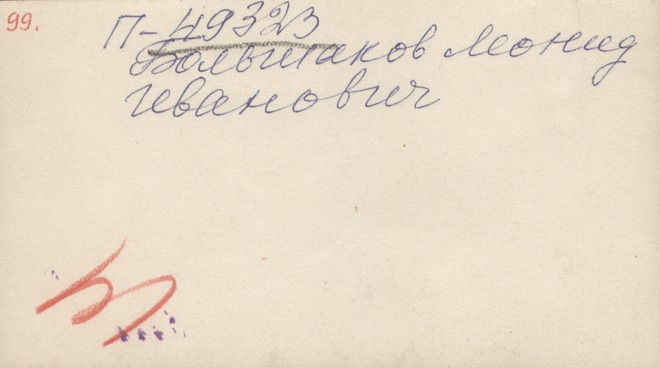 99.
П-49323
Большаков Леонид
Иванович